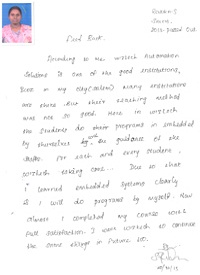 Salem,
2012 Passed Out
First Rank.
According to me wiztech Automation
Solutions is one of the good institutions,
Here in my city(salem) many institutions
are there but their teaching method
was not so good. Here in wiztech
the students do their programs in embedded
by themselves by with the guidance of the
staffs. For each and every student,
wiztech taking care... Due to that
I learned embedded systems clearly
& I will do programs by myself. Now
almost I completed my course with
full satisfaction. I want wiztech to continue
the same always in future too.